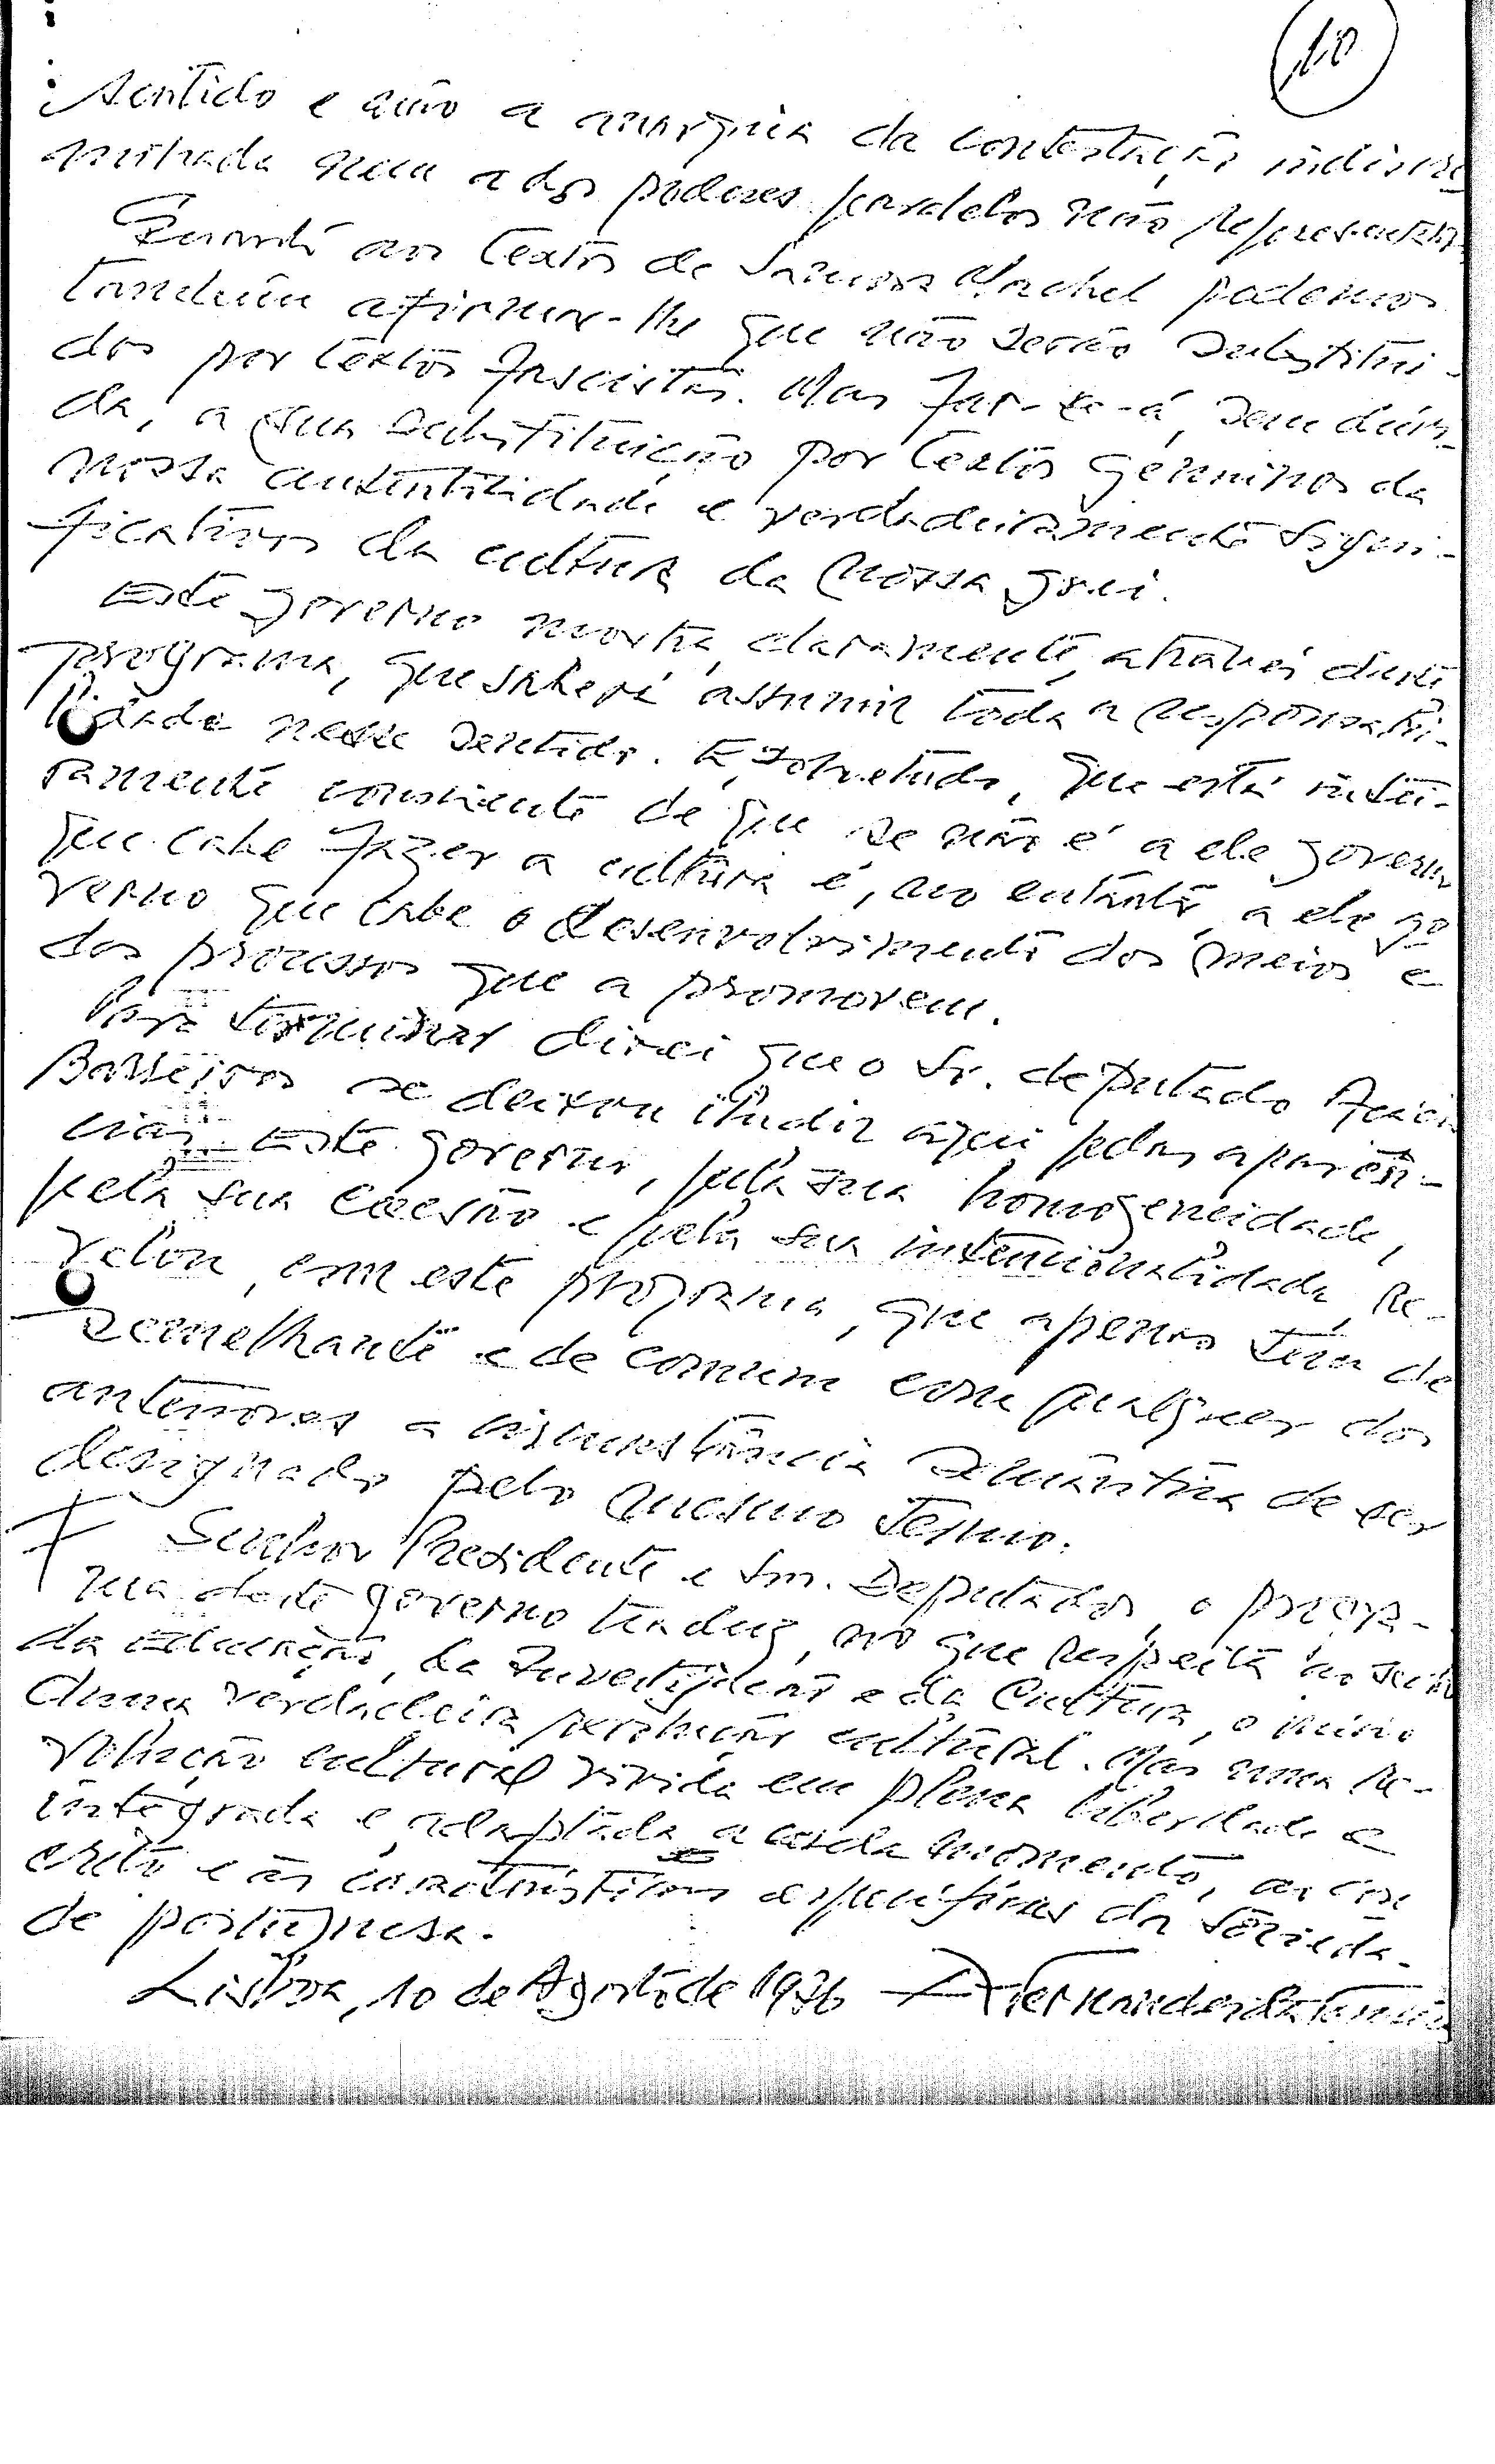 10
sentido e não a anarquia da contestação indiscri
minada nem a dos poderes paralelos não representativos
Quanto aos textos de Samora Machel podemos
também afirmar-lhe que não serão substituí-
dos por textos fascistas. Mas far-se-á, sem dúvi-
da, a sua substituição por textos genuinos da
nossa autenticidade e verdadeiramente signi-
ficativos da cultura da nossa grei.
Este governo mostra, claramente, através deste
programa, que saberá assumir toda a responsabi-
lidade nesse sentido. E, sobretudo, que está intei-
ramente consciente de que se não é a ele governo
que cabe fazer a cultura é, no entanto, a ele go
verno que cabe o desenvolvimento dos meios e
dos processos que a promovem.
Para terminar direi que o Sr. deputado Acácio
Barreiros se deixou iludir aqui pelas aparên-
cias. Este governo, pela sua homogeneidade,
pela sua coesão e pela sua intencionalidade, re-
velou, com este programa, que apenas tem de
semelhante e de comum com qualquer dos
anteriores a circunstância semântica de ser
designado pelo mesmo termo.
Senhor Presidente e Srs. Deputados, o progra-
ma deste governo traduz, no que respeita ao sector
da Educação, da Investigação e da Cultura, o início
duma verdadeira revolução cultural. Mas uma re-
volução cultural vivida em plena liberdade e
integrada e adaptada, a cada momento, ao con
creto e às características específicas da socieda-
de portuguesa.
Lisboa, 10 de Agosto de 1976